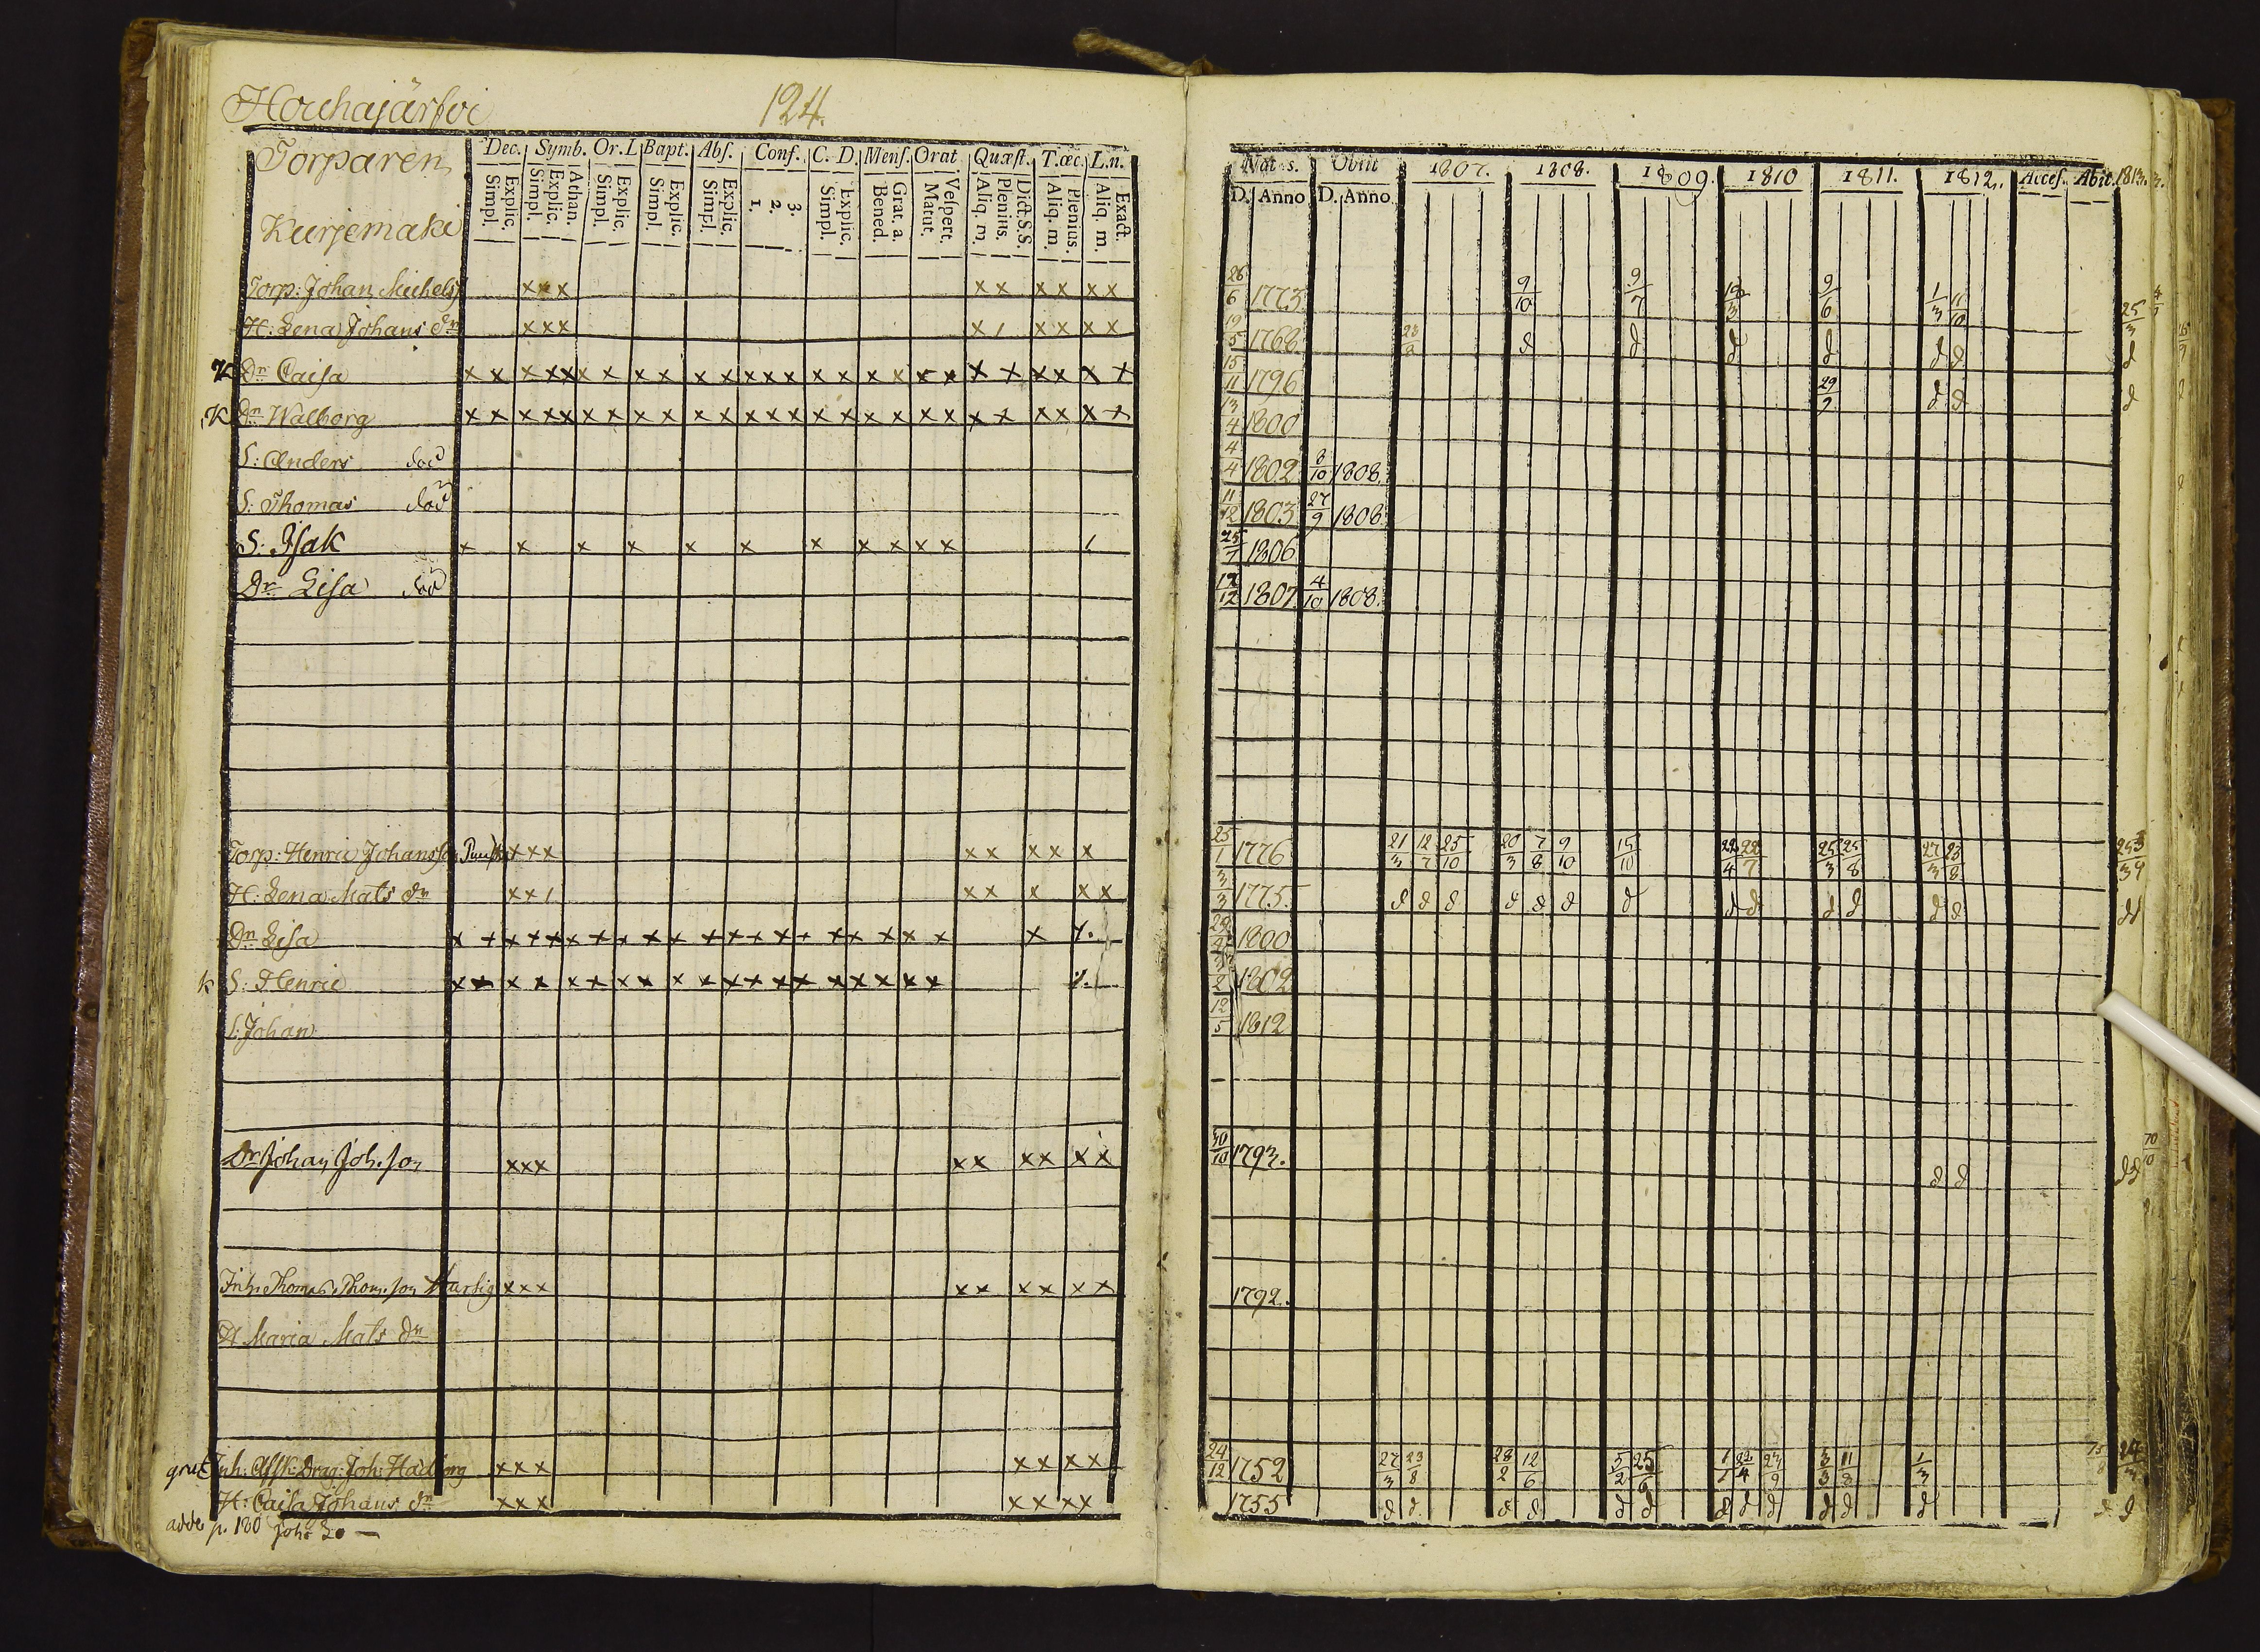 124.
Torparen
Kurjemäki
Dec. Symb. Or.D. Bapt. Abs. Conf. C. D. Mens. Orat. Quæst. T.œc. L.n.
Simpl. Explic. Simpl. Explic. Athan. Simpl. Explic. Simpl. Explic. Simpl. Explic. 1. 2. 3. Simpl. Explic. Bened. Grat. a. Matut. Vespert. Aliq. m. Plenius. Dict.S.S. Aliq. m. Plenius. Aliq. m. Exact.
Natus. Obiit 1807. 1808. 1809. 1810 1811. 1812. Acces. Abit. 1813.
D. Anno D. Anno
Torp: Johan Michelss xxx xx xx xx 26/6 1773 9/10 9/7 9/6 1/3 11/10 25/3
H: Lena Johans dr xxx x/ xx xx 19/5 1768 d d d d d d d
K Dr Caisa x x x x x x x x x x x x x x x x x x x x x x x x x x x 15/11 1796 29/9 d d d
K Dr Walborg x x x x x x x x x x x x x x x x x x x x x x x x x x x 13/4 1800
S: Anders död 4/4 1802 8/10 1808.
S: Thomas död 11/12 1803 27/9 1808
S: Isak x x x x x x x x x x x / 25/7 1806
Dr Lisa död 12/12 1807 4/10 1808.
Torp: Henric Johansson xxx xx xx x 25/1 1776 21/3 12/7 25/10 20/3 7/8 9/10 15/10 22/4 22/7 25/3 25/8 27/3 23/8
H: Lena Mats dr xx/ xx x xx 3/3 1775 d d d d d d d d d d d d d dd
Dr Lisa 1800
k S: Henric 1802
S: Johan 12/5 1812
Dr Johan Joh.son xxx xx xx xx 30/10 1793. d d dd
Inh: Thomas Thom.son xxx xx xx xx 1792.
H Maria Mats dr
Inh: Afsk: Drag: Joh: xxx xx xx 24/12 1752 27/3 23/8 28/2 12/6 5/2 25/6 3/3 11/8 1/3
H: Caisa Johans dr xxx xx xx 1755 d d d d d d d d d d d d d d
adde p. 180